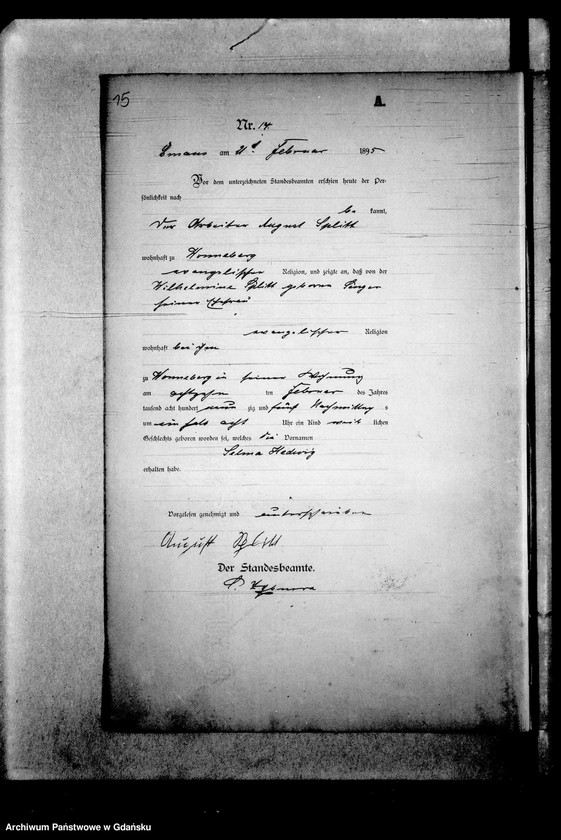 15
A.
Nr. 14.
Emaus am 21t Februar 1895
Vor dem unterzeichneten Standesbeamten erschien heute der Per-
sönlichkeit nach
be kannt,
der Arbeiter August Splitt
wohnhaft zu Wonneberg
evangelischer Religion, und zeigte an, daß von der
Wilhelmine Splitt geborene
seiner Ehefrau
evangelischer Religion
wohnhaft bei ihm
zu Wonneberg in seiner Wohnung
am achtzehn ten Februar des Jahres
tausend acht hundert neun zig und fünf Nachmittag s
um ein halb acht Uhr ein Kind weib lichen
Geschlechts geboren worden sei, welches die Vornamen
Selma Hedwig
erhalten habe.
Vorgelesen genehmigt und unterschrieben
August Splitt
Der Standesbeamte.
Archiwum Państwowe w Gdańsku